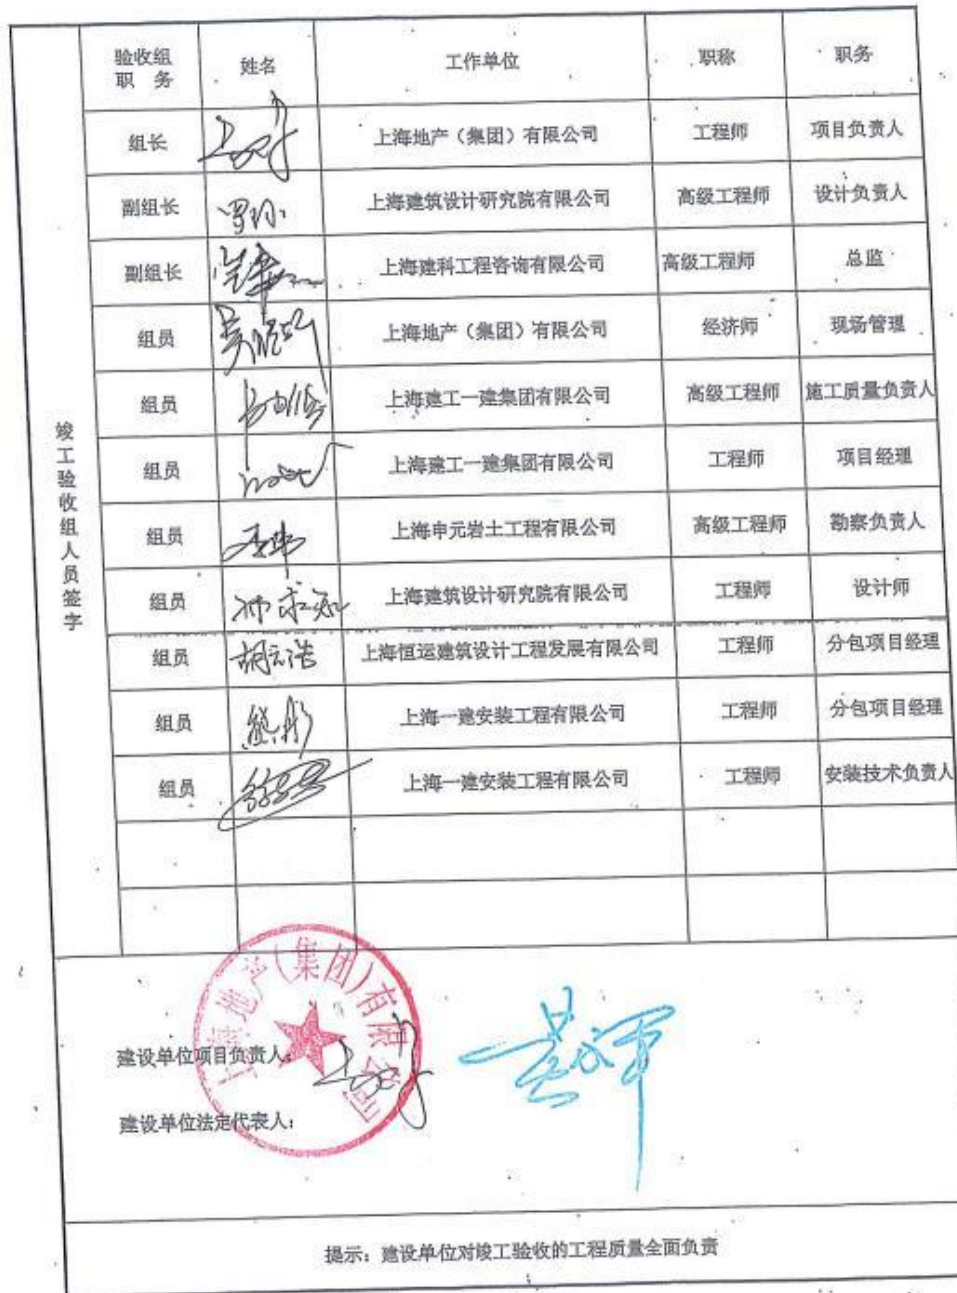 验收组职 务 姓名 工作单位 职称 职务
竣工验收组人员签字
组长 上海地产（集团）有限公司 工程师 项目负责人
副组长 上海建筑设计研究院有限公司 高级工程师 设计负责人
副组长 上海建科工程咨询有限公司 高级工程师 总监
组员 上海地产（集团）有限公司 经济师 现场管理
组员 上海建工一建集团有限公司 高级工程师 施工质量负责人
组员 上海建工一建集团有限公司 工程师 项目经理
组员 上海申元岩土工程有限公司 高级工程师 勘察负责人
组员 上海建筑设计研究院有限公司 工程师 设计师
组员 胡元浩 上海恒运建筑设计工程发展有限公司 工程师 分包项目经理
组员 熊彤 上海一建安装工程有限公司 工程师 分包项目经理
组员 上海一建安装工程有限公司 工程师 安装技术负责人
上海地产(集团)有限公司
建设单位项目负责人：
建设单位法定代表人：
提示：建设单位对竣工验收的工程质量全面负责